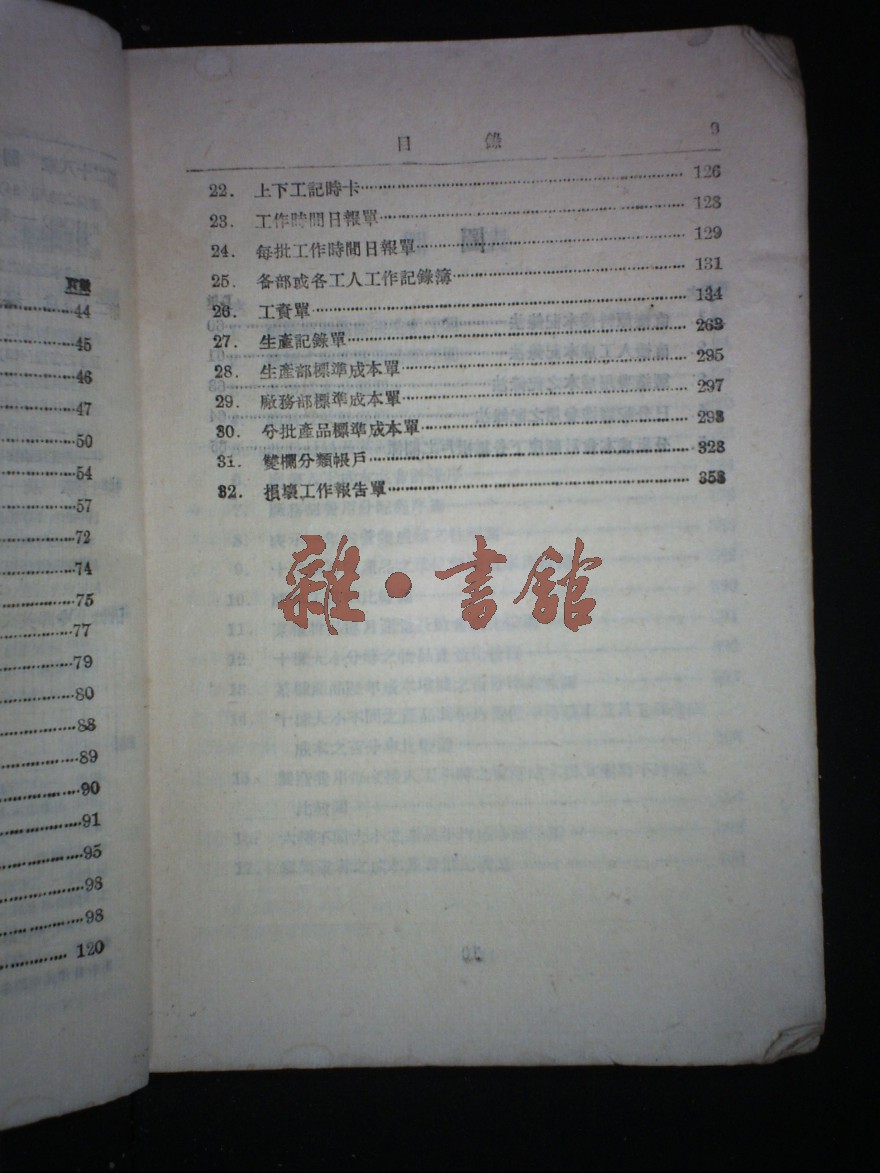 頁數
44
45
46
47
50
54
57
72
74
75
77
79
80
88
89
90
91
95
98
98
120
目 錄 9
22. 上下工記時卡 126
23. 工作時間日報單 128
24. 每批工作時間日報單 129
25. 各部或各工人工作記錄簿 131
26. 工資單 134
27. 生產記錄單 263
28. 生產部標準成本單 295
29. 廠務部標準成本單 297
30. 分批產品標準成本單 298
31. 雙欄分類帳戶 328
32. 損壞工作報告單 353
雜·書館